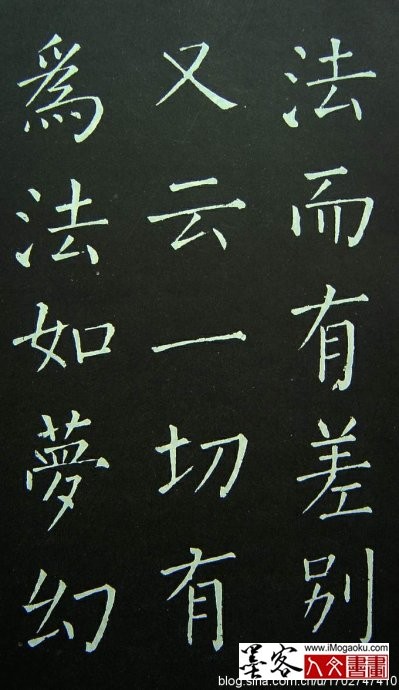 法而有差别
又云一切有
爲法如夢幻
www.iMogaoku.com
墨客
人文書畫
blog.sina.com.cn/u/1702747410